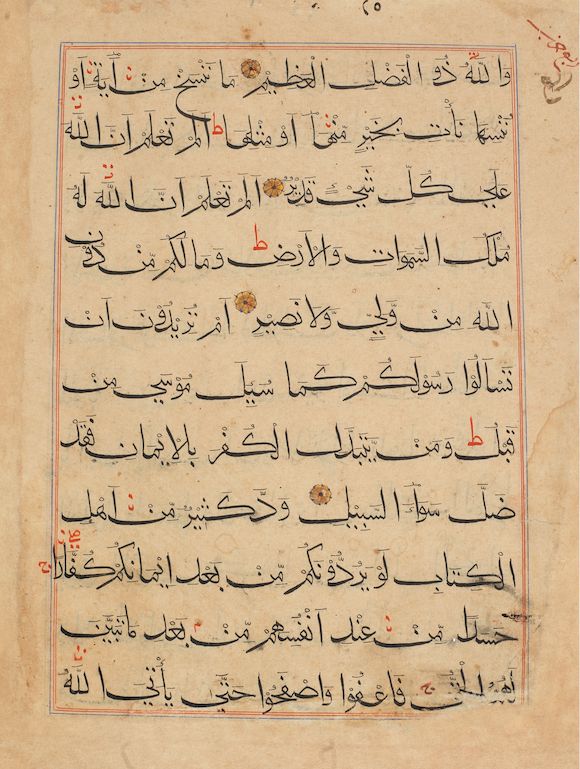 وَاللّٰهُ ذُو الْفَضْلِ الْعَظِيْمِ مَا نَنْسَخْ مِنْ اٰيَةٍ اَوْ
نُنْسِهَا نَأْتِ بِخَيْرٍ مِنْهَا اَوْ مِثْلِهَا ط اَلَمْ تَعْلَمْ اَنَّ اللّٰهَ
عَلٰي كُلِّ شَيْءٍ قَدِيْرٌ اَلَمْ تَعْلَمْ اَنَّ اللّٰهَ لَهُ
مُلْكُ السَّمٰوَاتِ وَالْاَرْضِ ط وَمَا لَكُمْ مِّنْ دُوْنِ
اللّٰهِ مِنْ وَّلِيٍّ وَّلَا نَصِيْرٍ اَمْ تُرِيْدُوْنَ اَنْ
تَسْاَلُوْا رَسُوْلَكُمْ كَمَا سُئِلَ مُوْسٰي مِنْ
قَبْلُ ط وَمَنْ يَّتَبَدَّلِ الْكُفْرَ بِالْاِيْمَانِ فَقَدْ
ضَلَّ سَوَآءَ السَّبِيْلِ وَدَّ كَثِيْرٌ مِّنْ اَهْلِ
الْكِتَابِ لَوْ يَرُدُّوْنَكُمْ مِّنْ بَعْدِ اِيْمَانِكُمْ كُفَّارًا ج
حَسَدًا مِّنْ عِنْدِ اَنْفُسِهِمْ مِّنْ بَعْدِ مَا تَبَيَّنَ
لَهُمُ الْحَقُّ ج فَاعْفُوْا وَاصْفَحُوْا حَتّٰي يَأْتِيَ اللّٰهُ